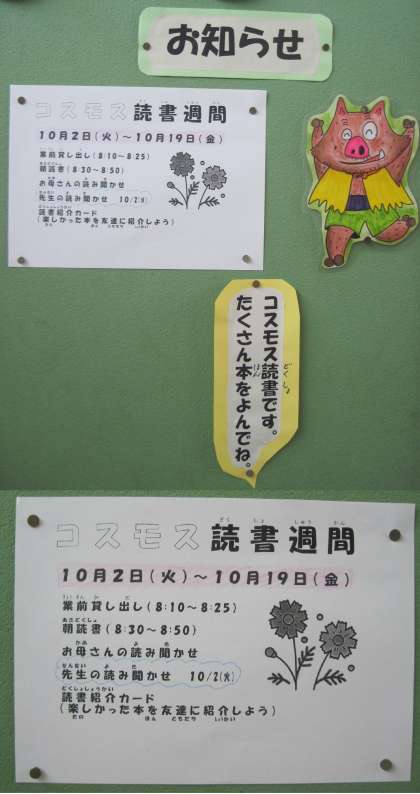 お知らせ
コスモス読書週間
10月2日(火)～10月19日(金)
業前貸し出し(8:10～8:25)
朝読書(8:30～8:50)
お母さんの読み聞かせ
先生の読み聞かせ 10/2(火)
読書紹介カード
(楽しかった本を友達に紹介しよう)
コスモス読書です。
たくさん本をよんでね。
コスモス読書週間
10月2日(火)～10月19日(金)
業前貸し出し(8:10～8:25)
朝読書(8:30～8:50)
お母さんの読み聞かせ
先生の読み聞かせ 10/2(火)
読書紹介カード
(楽しかった本を友達に紹介しよう)